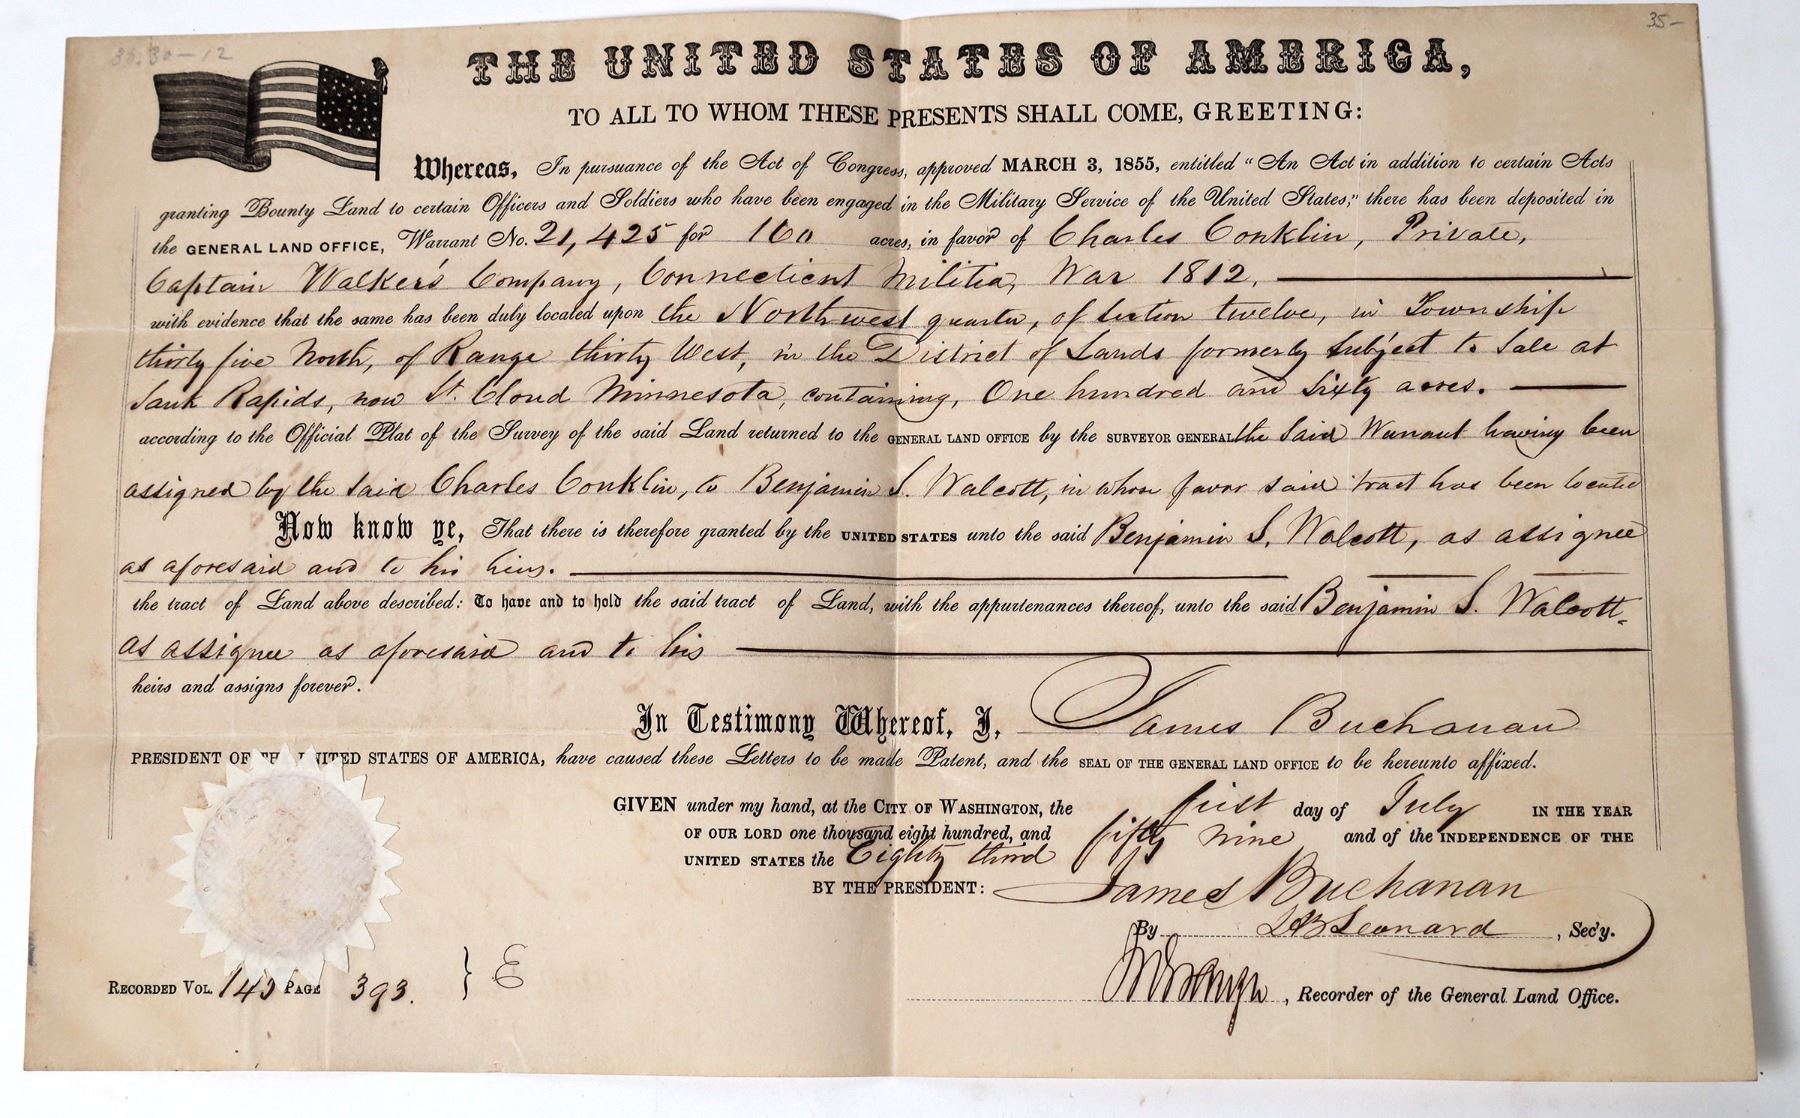 35-
THE UNITED STATES OF AMERICA,
TO ALL TO WHOM THESE PRESENTS SHALL COME, GREETING:
Whereas, In pursuance of the Act of Congress, approved MARCH 3, 1855, entitled "An Act in addition to certain Acts
granting Bounty Land to certain Officers and Soldiers who have been engaged in the Military Service of the United States," there has been deposited in
the GENERAL LAND OFFICE, Warrant No. 21,425 for 160 acres, in favor of Charles Conklin, Private,
Captain Walker's Company, Connecticut Militia, War 1812,
with evidence that the same has been duly located upon the North west quarter, of Section twelve, in Township
thirty five North, of Range thirty West, in the District of Lands formerly Subject to Sale at
Sauk Rapids, now St. Cloud Minnesota, containing, One hundred and Sixty acres.
according to the Official Plat of the Survey of the said Land returned to the GENERAL LAND OFFICE by the SURVEYOR GENERAL the Said Warrant having been
assigned by the Said Charles Conklin, to Benjamin S. Walcott, in whose favor said tract has been located
Now know ye, That there is therefore granted by the UNITED STATES unto the said Benjamin S. Walcott, as assignee
as aforesaid and to his heirs.
the tract of Land above described: To have and to hold the said tract of Land, with the appurtenances thereof, unto the said Benjamin S. Walcott
as assignee as aforesaid and to his
heirs and assigns forever.
In Testimony Whereof, I, James Buchanan
PRESIDENT OF THE UNITED STATES OF AMERICA, have caused these Letters to be made Patent, and the SEAL OF THE GENERAL LAND OFFICE to be hereunto affixed.
GIVEN under my hand, at the CITY OF WASHINGTON, the first day of July IN THE YEAR
OF OUR LORD one thousand eight hundred, and fifty nine and of the INDEPENDENCE OF THE
UNITED STATES the Eighty third
BY THE PRESIDENT: James Buchanan
By Leonard, Sec'y.
RECORDED VOL. PAGE 393. } E
, Recorder of the General Land Office.